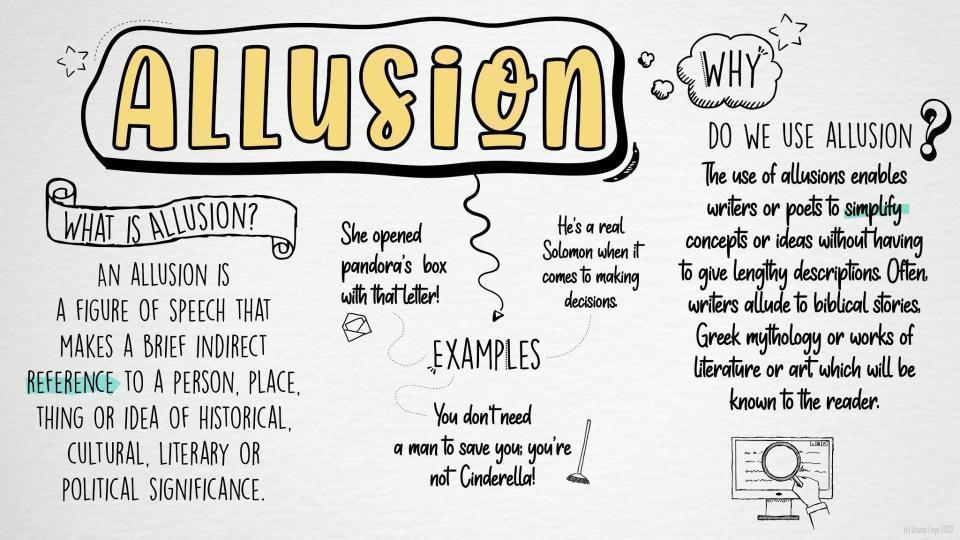 ALLUSION
WHAT IS ALLUSION?
AN ALLUSION IS
A FIGURE OF SPEECH THAT
MAKES A BRIEF INDIRECT
REFERENCE TO A PERSON, PLACE,
THING OR IDEA OF HISTORICAL,
CULTURAL, LITERARY OR
POLITICAL SIGNIFICANCE.
She opened
pandora's box
with that letter!
He's a real
Solomon when it
comes to making
decisions.
EXAMPLES
You don't need
a man to save you; you're
not Cinderella!
WHY
DO WE USE ALLUSION?
The use of allusions enables
writers or poets to simplify
concepts or ideas without having
to give lengthy descriptions. Often,
writers allude to biblical stories,
Greek mythology or works of
literature or art, which will be
known to the reader.
2020